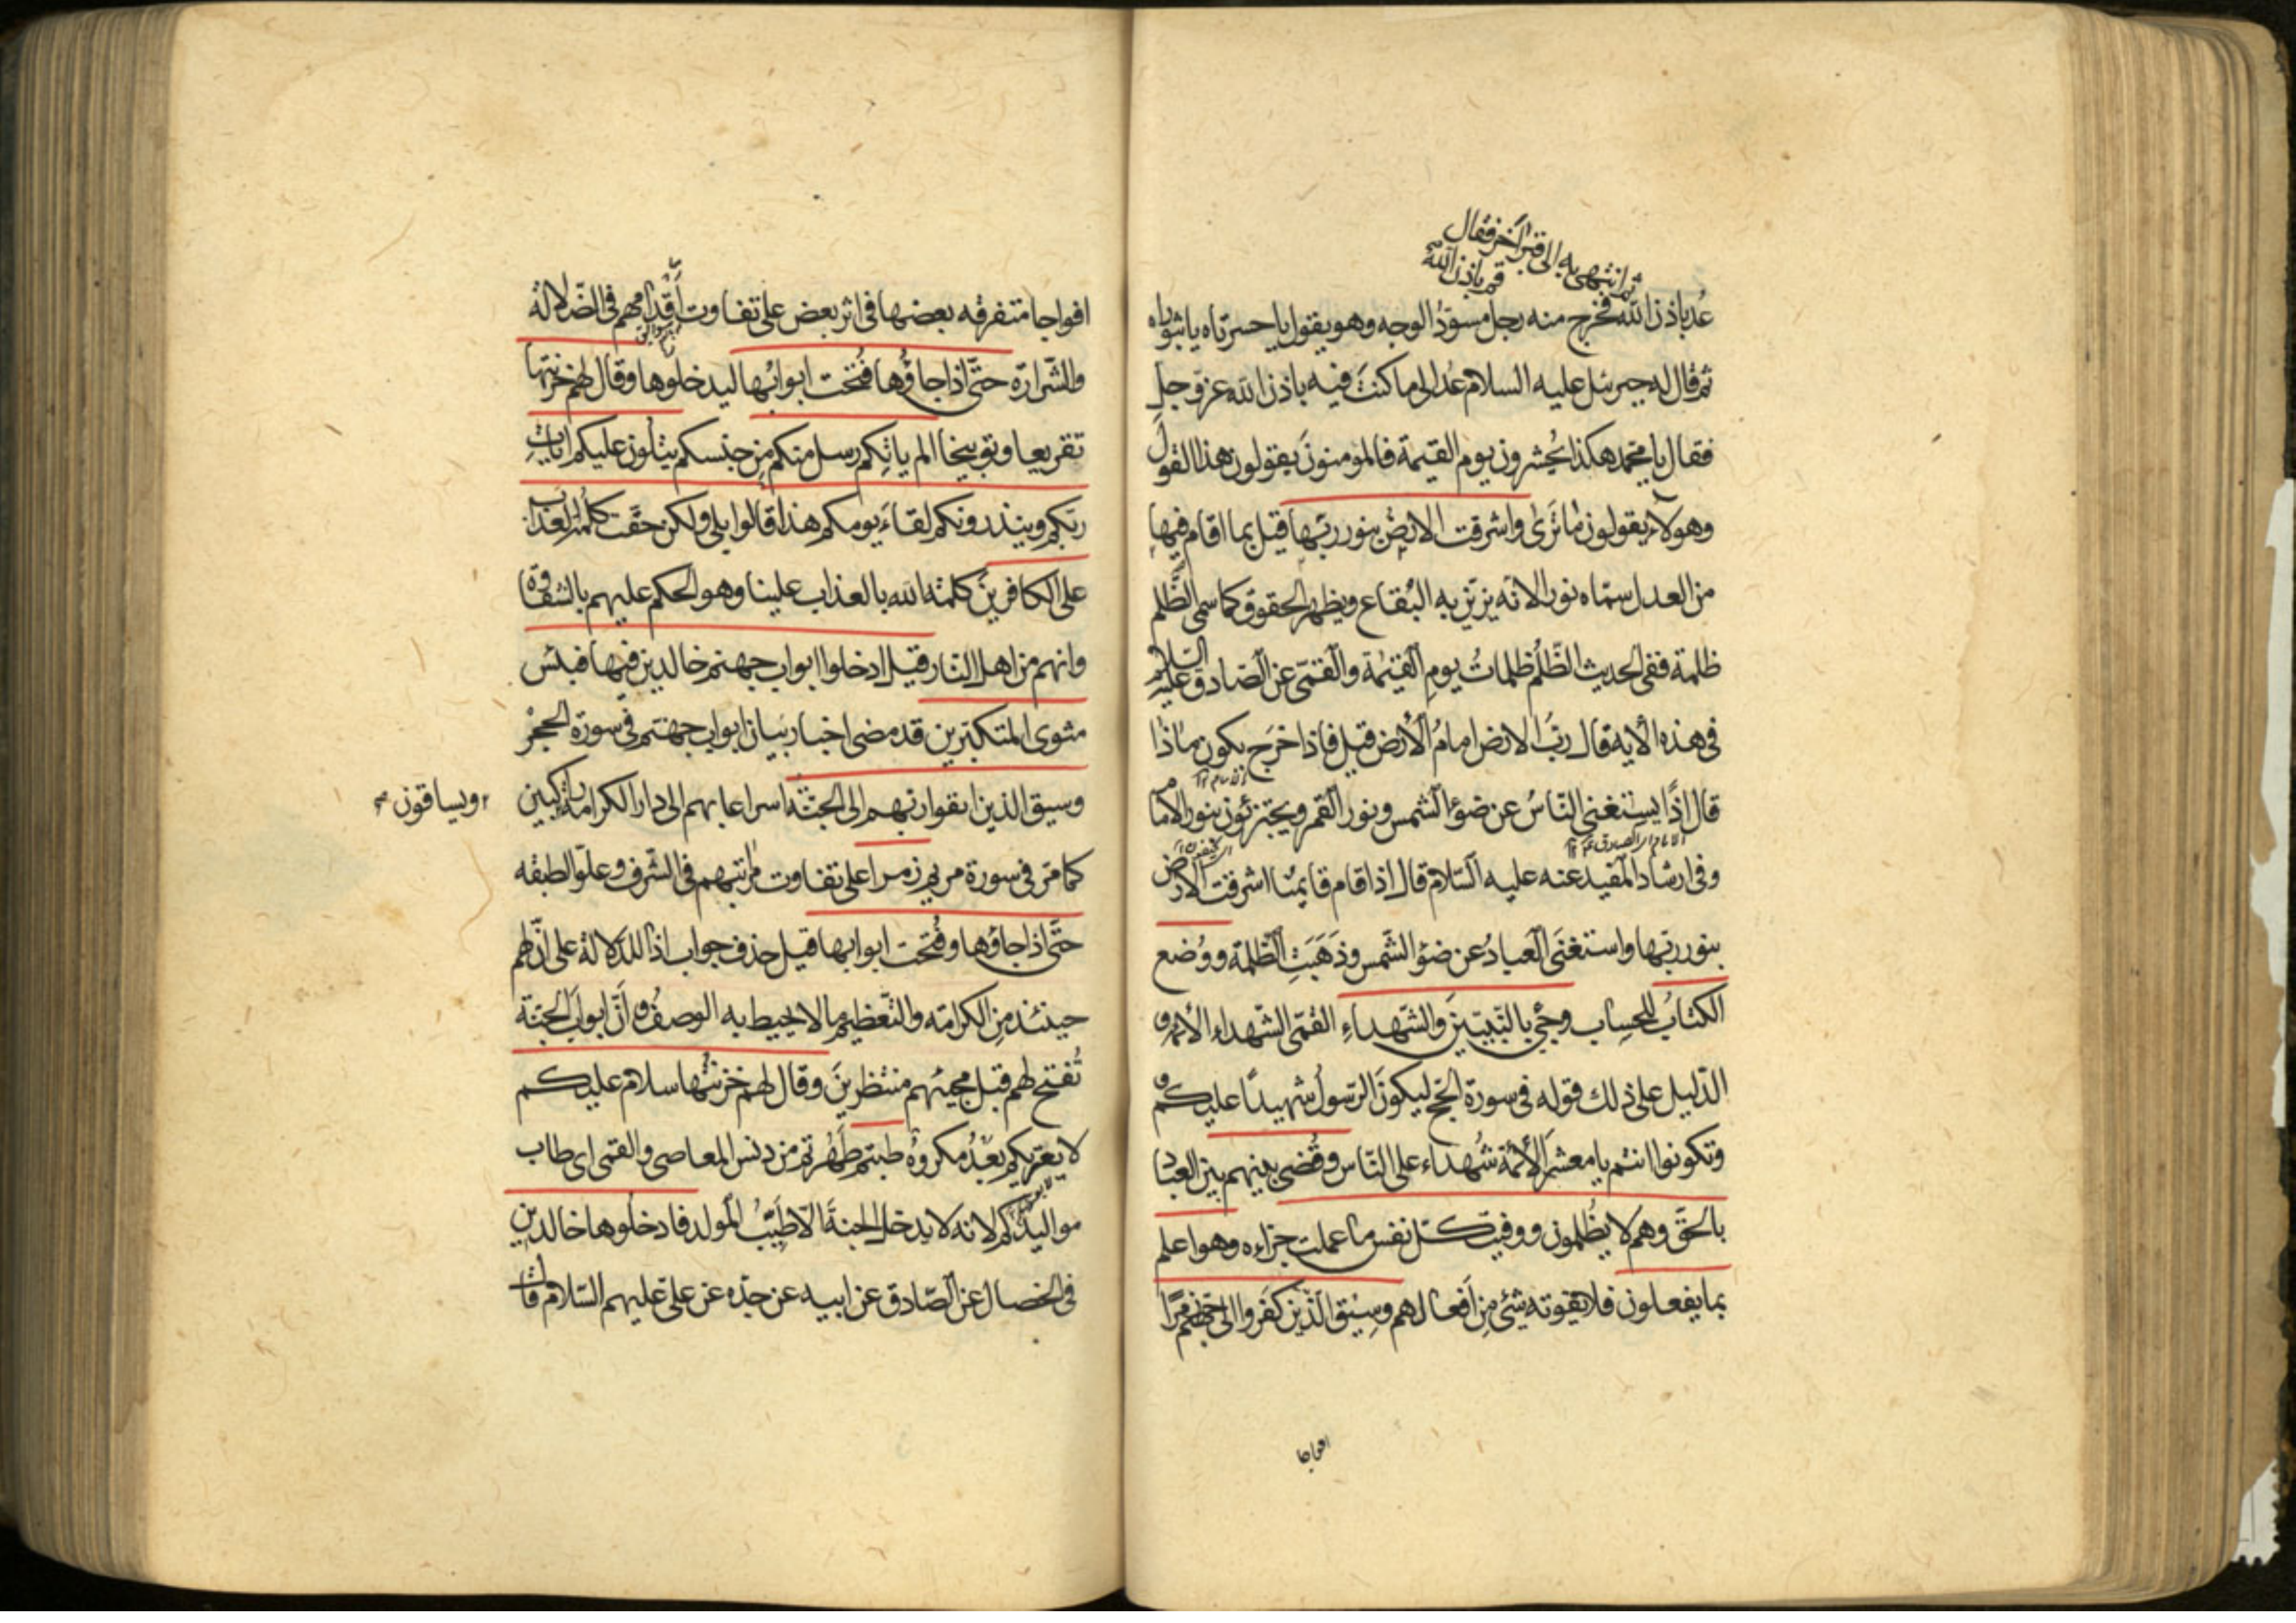 ثم انتهى به الى قبر آخر فقال
قم باذن الله
عُد باذن الله فخرج منه رجل مسودّ الوجه وهو يقول يا حسرتاه يا ثبوراه
ثم قال له جبرئيل عليه السلام عُد الى ما كنتَ فيه باذن الله عز وجل
فقال يا محمد هكذا يُحشرون يوم القيمة فالمؤمنونَ يقولون هذا القولَ
وهولاء يقولون ما تَرىٰ واشرقت الارض بنور ربّها قيل بما اقام فيها
من العدل سمّاه نورا لانّه يزيّن به البُقاع ويظهر الحقوق كما سمى الظّلم
ظلمة ففى الحديث الظّلُم ظلماتُ يومِ القيٰمة والقمّى عن الصّادق عليه السّلام
فى هذه الآية قال ربّ الارض امامُ الأرض قيل فاذا خرَج يكون ماذا
قال اذًا يستغنى النّاسُ عن ضوء الشمس ونور القمر ويجتزئون بنور الامام
وفى ارشاد المفيد عنه عليه السّلام قال اذا قام قايمُنا اشرقت الارض
بنور ربّها واستغنَى العبادُ عن ضوء الشّمس وذَهَبَتِ الظّلمة ووُضع
الكتٰابُ للحِساب وجئ بالنّبيّينَ والشّهداءِ القمّى الشّهداء الأئمة و
الدّليل على ذلك قوله فى سورة الحجّ ليكونَ الرّسولُ شهيدًا عليكم و
وتكونوا انتم يا معشر الأئمة شُهداء على النّاس وقُضى بينهم بين العباد
بالحقّ وهم لا يظُلمون ووفيت كلّ نفس ما عملت جزاءه وهو اعلم
بما يفعلون فلا يفوته شئ مِن افعالهم وسيق الّذين كفَروا الى جهنّم زمرًا
افواجا
افواجا متفرقه بعضها فى اثر بعض على تفاوت أقدامهم فى الضّلالة
والشّرارة حتّى اذا جاؤُها فُتحت ابوابُها ليدخلوها وقال لهم خزنتها
تقريعا وتوبيخا الم ياتكم رسل منكم مِن جنسكم يتلون عليكم آيات
ربّكم وينذرونكم لقاءَ يومكم هذا قالوا بلى ولكن حقّت كلمة العذاب
على الكافرينَ كلمة الله بالعذاب علينا وهو الحكم عليهم بالشقاوة
وانهم من اهل النّار قيل ادخلوا ابواب جهنم خالدين فيها فبئس
مثوى المتكبّرين قد مضى اخبار بيان ابواب جهنّم فى سورة الحجر
وسيق الذين اتقوا ربّهم الى الجنّة اسراعا بهم الى دار الكرامة راكبين
ويساقون
كما مرّ فى سورة مريم زمرا على تفاوت مراتبهم فى الشّرف وعلوّ الطبقه
حتّى اذا جاؤها وفُتحت ابوابها قيل حذف جواب اذا للدّلالة على انّ لهم
حينئذ مِن الكرامة والتّعظيم ما لا يحيط به الوصف وانّ ابوابَ الجنّة
تُفتح لهم قبل مجيئهم منتظرينَ وقال لهم خزنتُها سلام عليكم
لا يعتريكم بَعْدُ مكروهُ طبتم طَهُرتم من دنس المعاصى والقمى اى طاب
مواليدكم لانه لا يدخل الجنةَ الّا طَيّبُ المولد فادخلوها خالدين
فى الخصال عن الصّادق عن ابيه عن جدّه عن علىّ عليهم السّلام قال